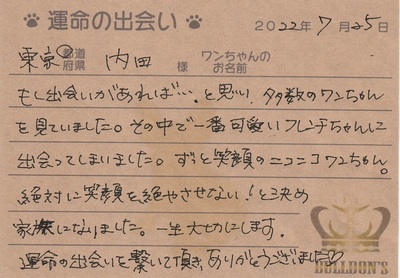 運命の出会い 2022年7月25日
東京都道府県 内田様 ワンちゃんのお名前
もし出会いがあれば…。と思い、多数のワンちゃん
を見ていました。その中で一番可愛いフレンチちゃんに
出会ってしまいました。ずと笑顔のニコニコワンちゃん。
絶対に笑顔を絶やさせない!と決め
家族になりました。一生大切にします。
運命の出会いを繋いで頂き、ありがとうございました♡
BULLDON'S